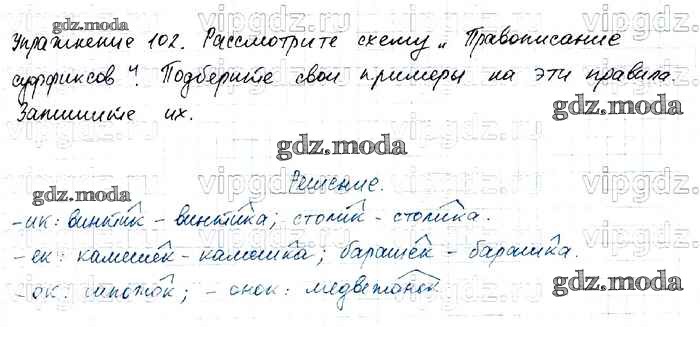 Упражнение 102. Рассмотрите схему „Правописание
суффиксов". Подберите свои примеры на эти правила.
Запишите их.
gdz.moda
Решение.
-ик: винтик - винтика; столик - столика.
-ек: камешек - камешка; барашек - барашка.
-ок: шпоток; -онок: медвежонок